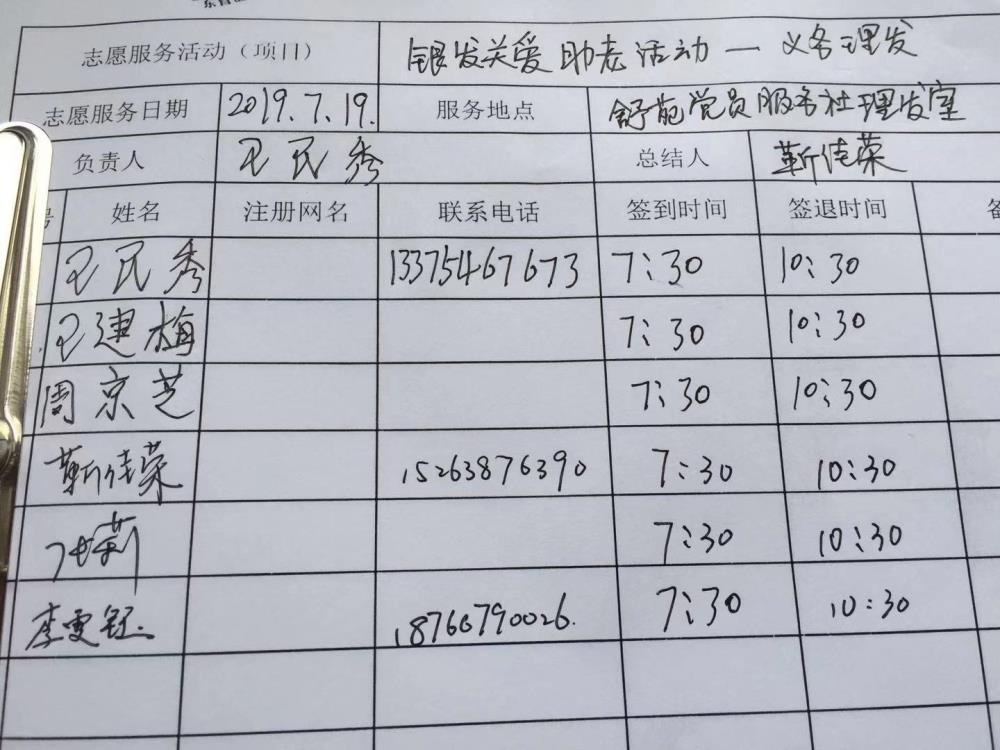 志愿服务活动（项目） 银发关爱助老活动一义务理发
志愿服务日期 2019.7.19. 服务地点 舒苑党员服务社理发室
负责人 王民秀 总结人 靳佳荣
号 姓名 注册网名 联系电话 签到时间 签退时间 备
王民秀 13375467673 7:30 10:30
王建梅 7:30 10:30
周京芝 7:30 10:30
靳佳荣 15263876390 7:30 10:30
莉 7:30 10:30
李雯钰. 18760790026. 7:30 10:30